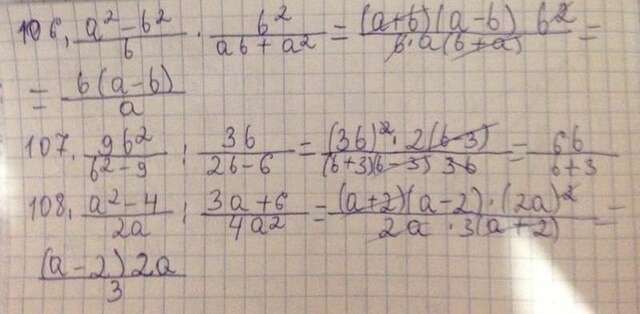 106. (a² - b²)/b · b²/(ab + a²) = ((a+b)(a-b) b²)/(b·a(b+a)) =
= b(a-b)/a
107. 9b²/(b² - 9) : 3b/(2b - 6) = ((3b)² · 2(b-3))/((b+3)(b-3) 3b) = 6b/(b+3)
108. (a² - 4)/2a : (3a + 6)/4a² = ((a+2)(a-2)·(2a)²)/(2a · 3(a+2)) =
(a-2)2a/3